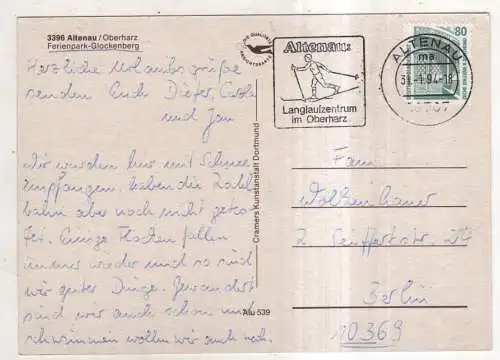 3396 Altenau/Oberharz
Ferienpark-Glockenberg
Herzliche Urlaubsgrüße
senden Euch Dieter, Carola
und Jan
Wir wurden hier mit Schnee
empfangen, haben die Rodel
bahn aber noch nicht getes-
tet. Einige Flocken fallen
immer wieder und so sind
wir guter Dinge. Gewandert
sind wir auch schon und
schwimmen wollen wir auch noch.
Cramers Kunstanstalt Dortmund
Altenau:
Langlaufzentrum
im Oberharz
ALTENAU
ma
31.-1.94-18
38707
80
Fam
Woltenhauer
Berlin
10369
Alu 539